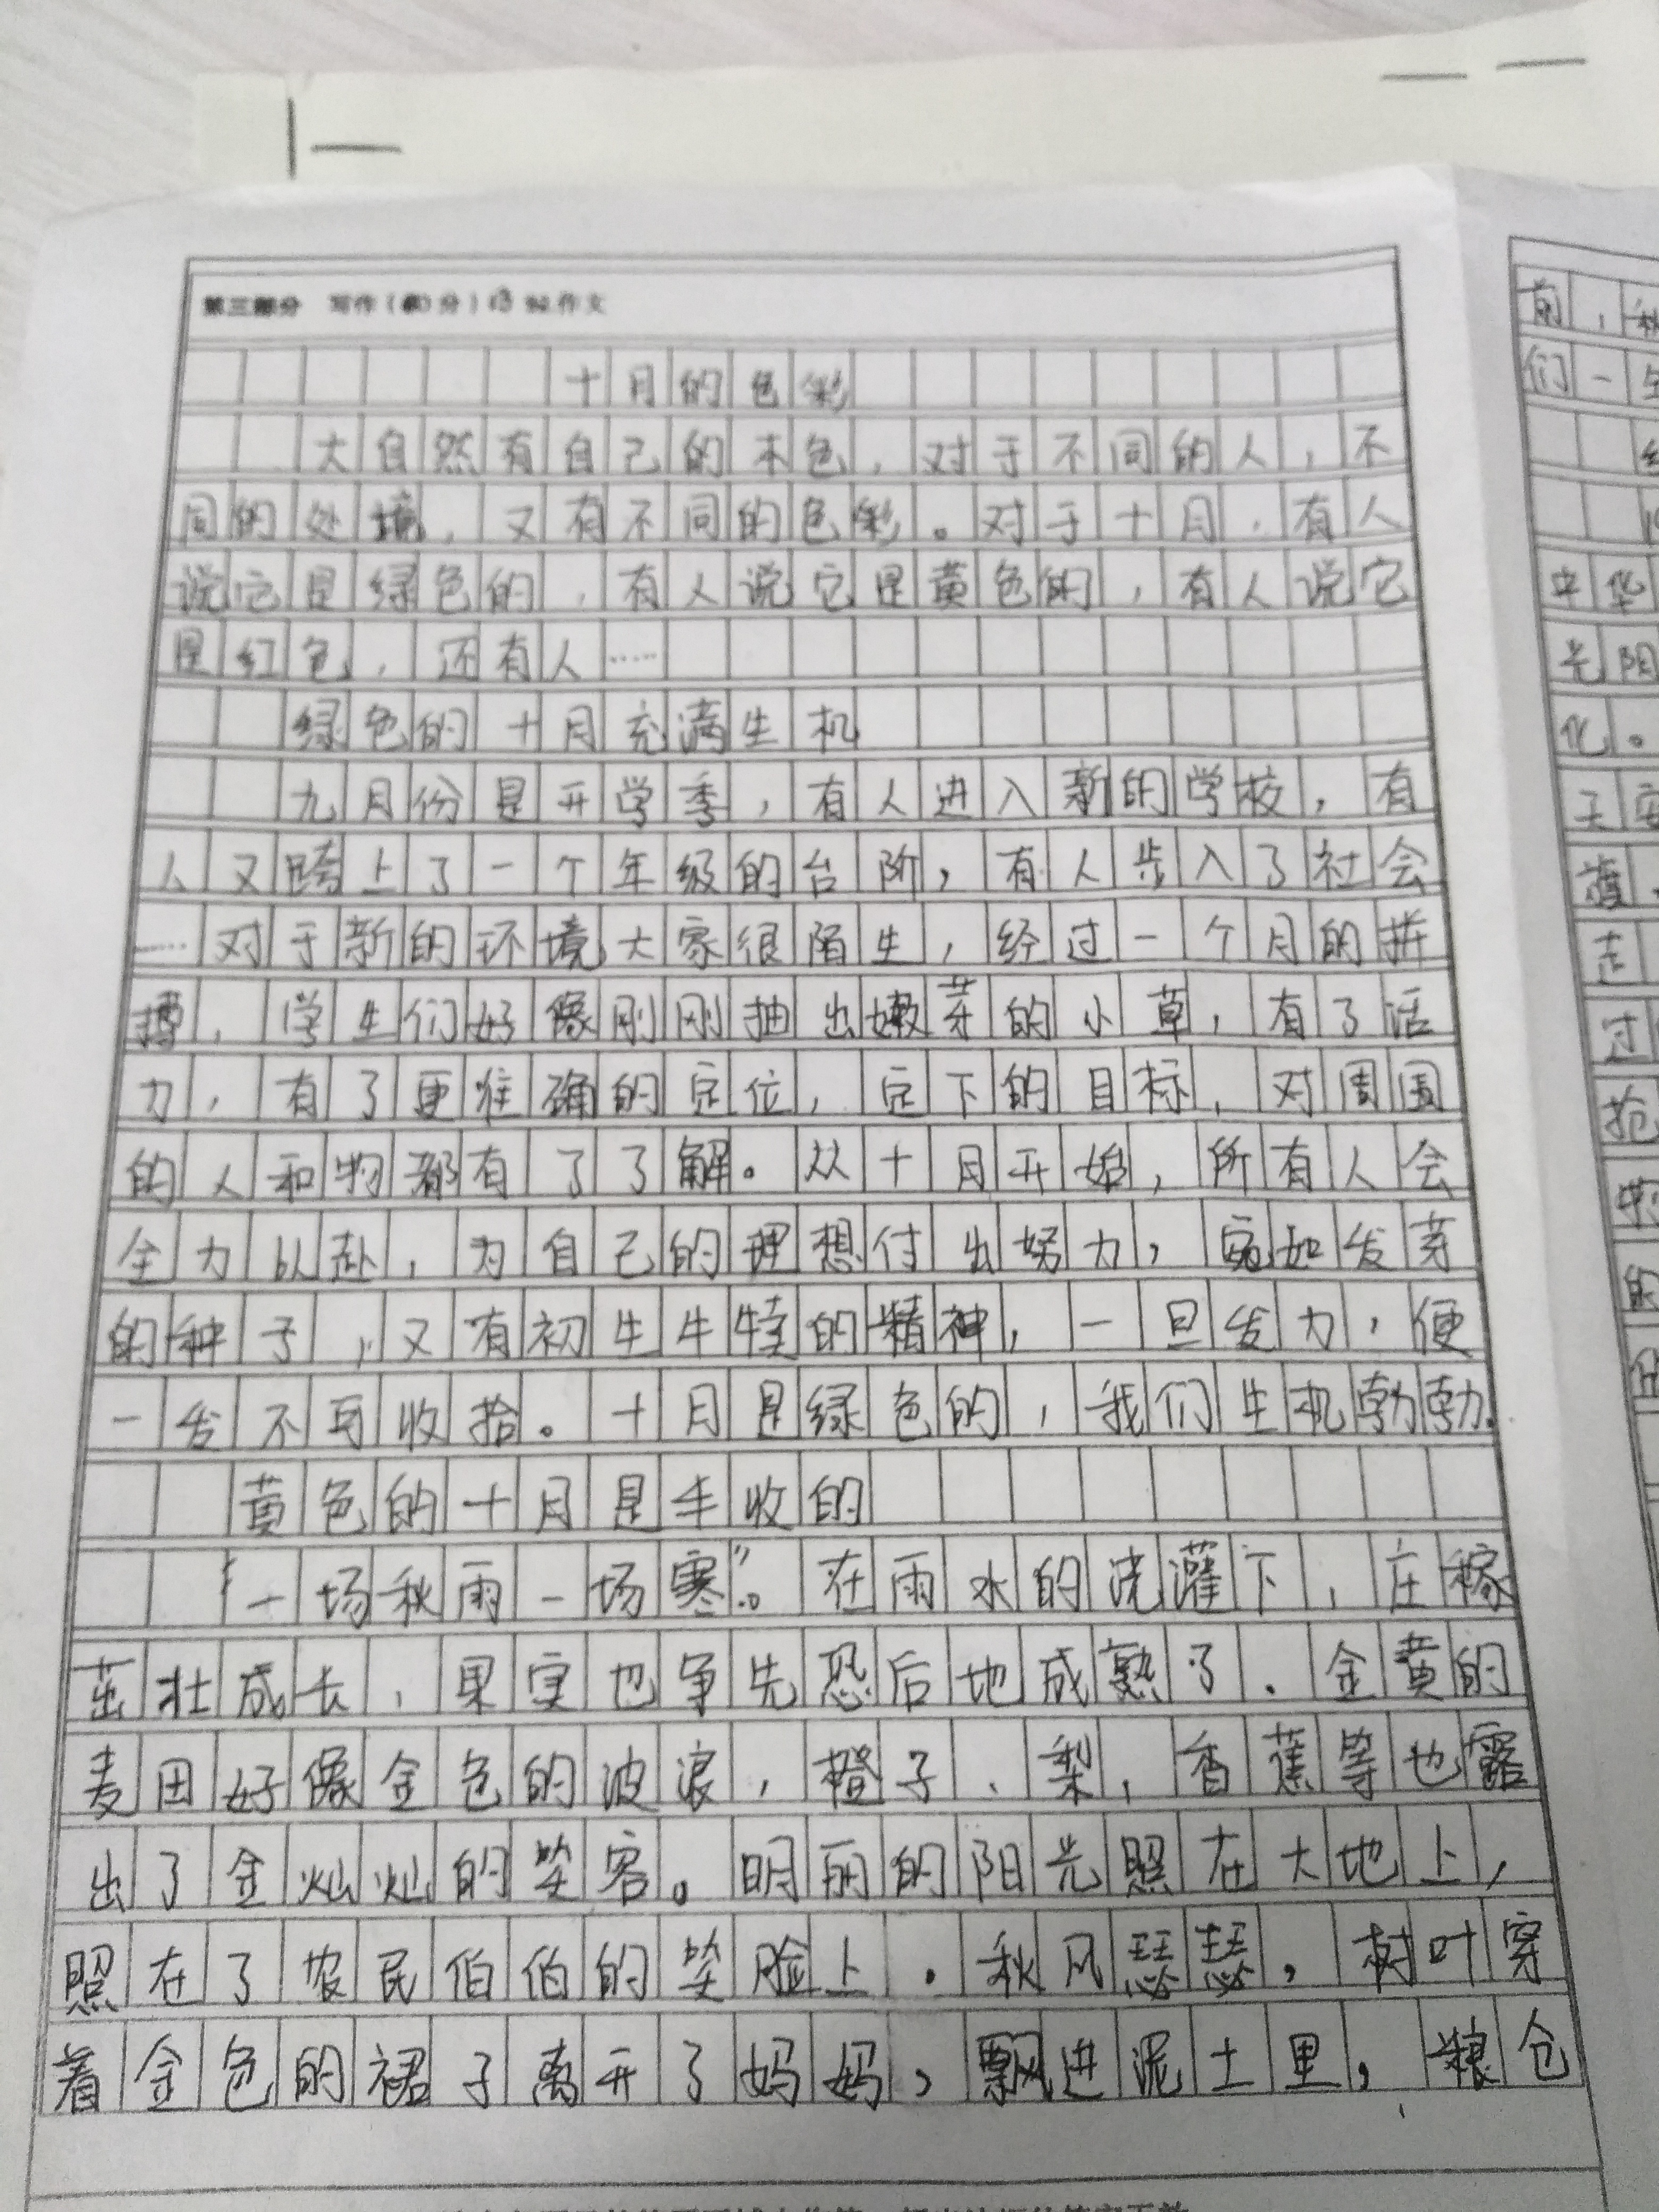 第三部分 写作（40分）13 922.作文
十月的色彩
大自然有自己的本色，对于不同的人，不
同的处境，又有不同的色彩。对于十月，有人
说它是绿色的，有人说它是黄色的，有人说它
是红色，还有人……
绿色的十月充满生机
九月份是开学季，有人进入新的学校，有
人又跨上了一个年级的台阶，有人步入了社会
……对于新的环境大家很陌生，经过一个月的拼
搏，学生们好像刚刚抽出嫩芽的小草，有了活
力，有了更准确的定位，定下的目标，对周围
的人和物都有了了解。从十月开始，所有人会
全力以赴，为自己的理想付出努力，宛如发芽
的种子，又有初生牛犊的精神，一旦发力，便
一发不可收拾。十月是绿色的，我们生机勃勃。
黄色的十月是丰收的
“一场秋雨一场寒”。在雨水的浇灌下，庄稼
茁壮成长，果实也争先恐后地成熟了。金黄的
麦田好像金色的波浪，橙子、梨，香蕉等也露
出了金灿灿的笑容。明丽的阳光照在大地上，
照在了农民伯伯的笑脸上。秋风瑟瑟，树叶穿
着金色的裙子离开了妈妈，飘进泥土里，粮仓
前，秋
们一
中华
光阳
化。
天安
走
过
抢
的